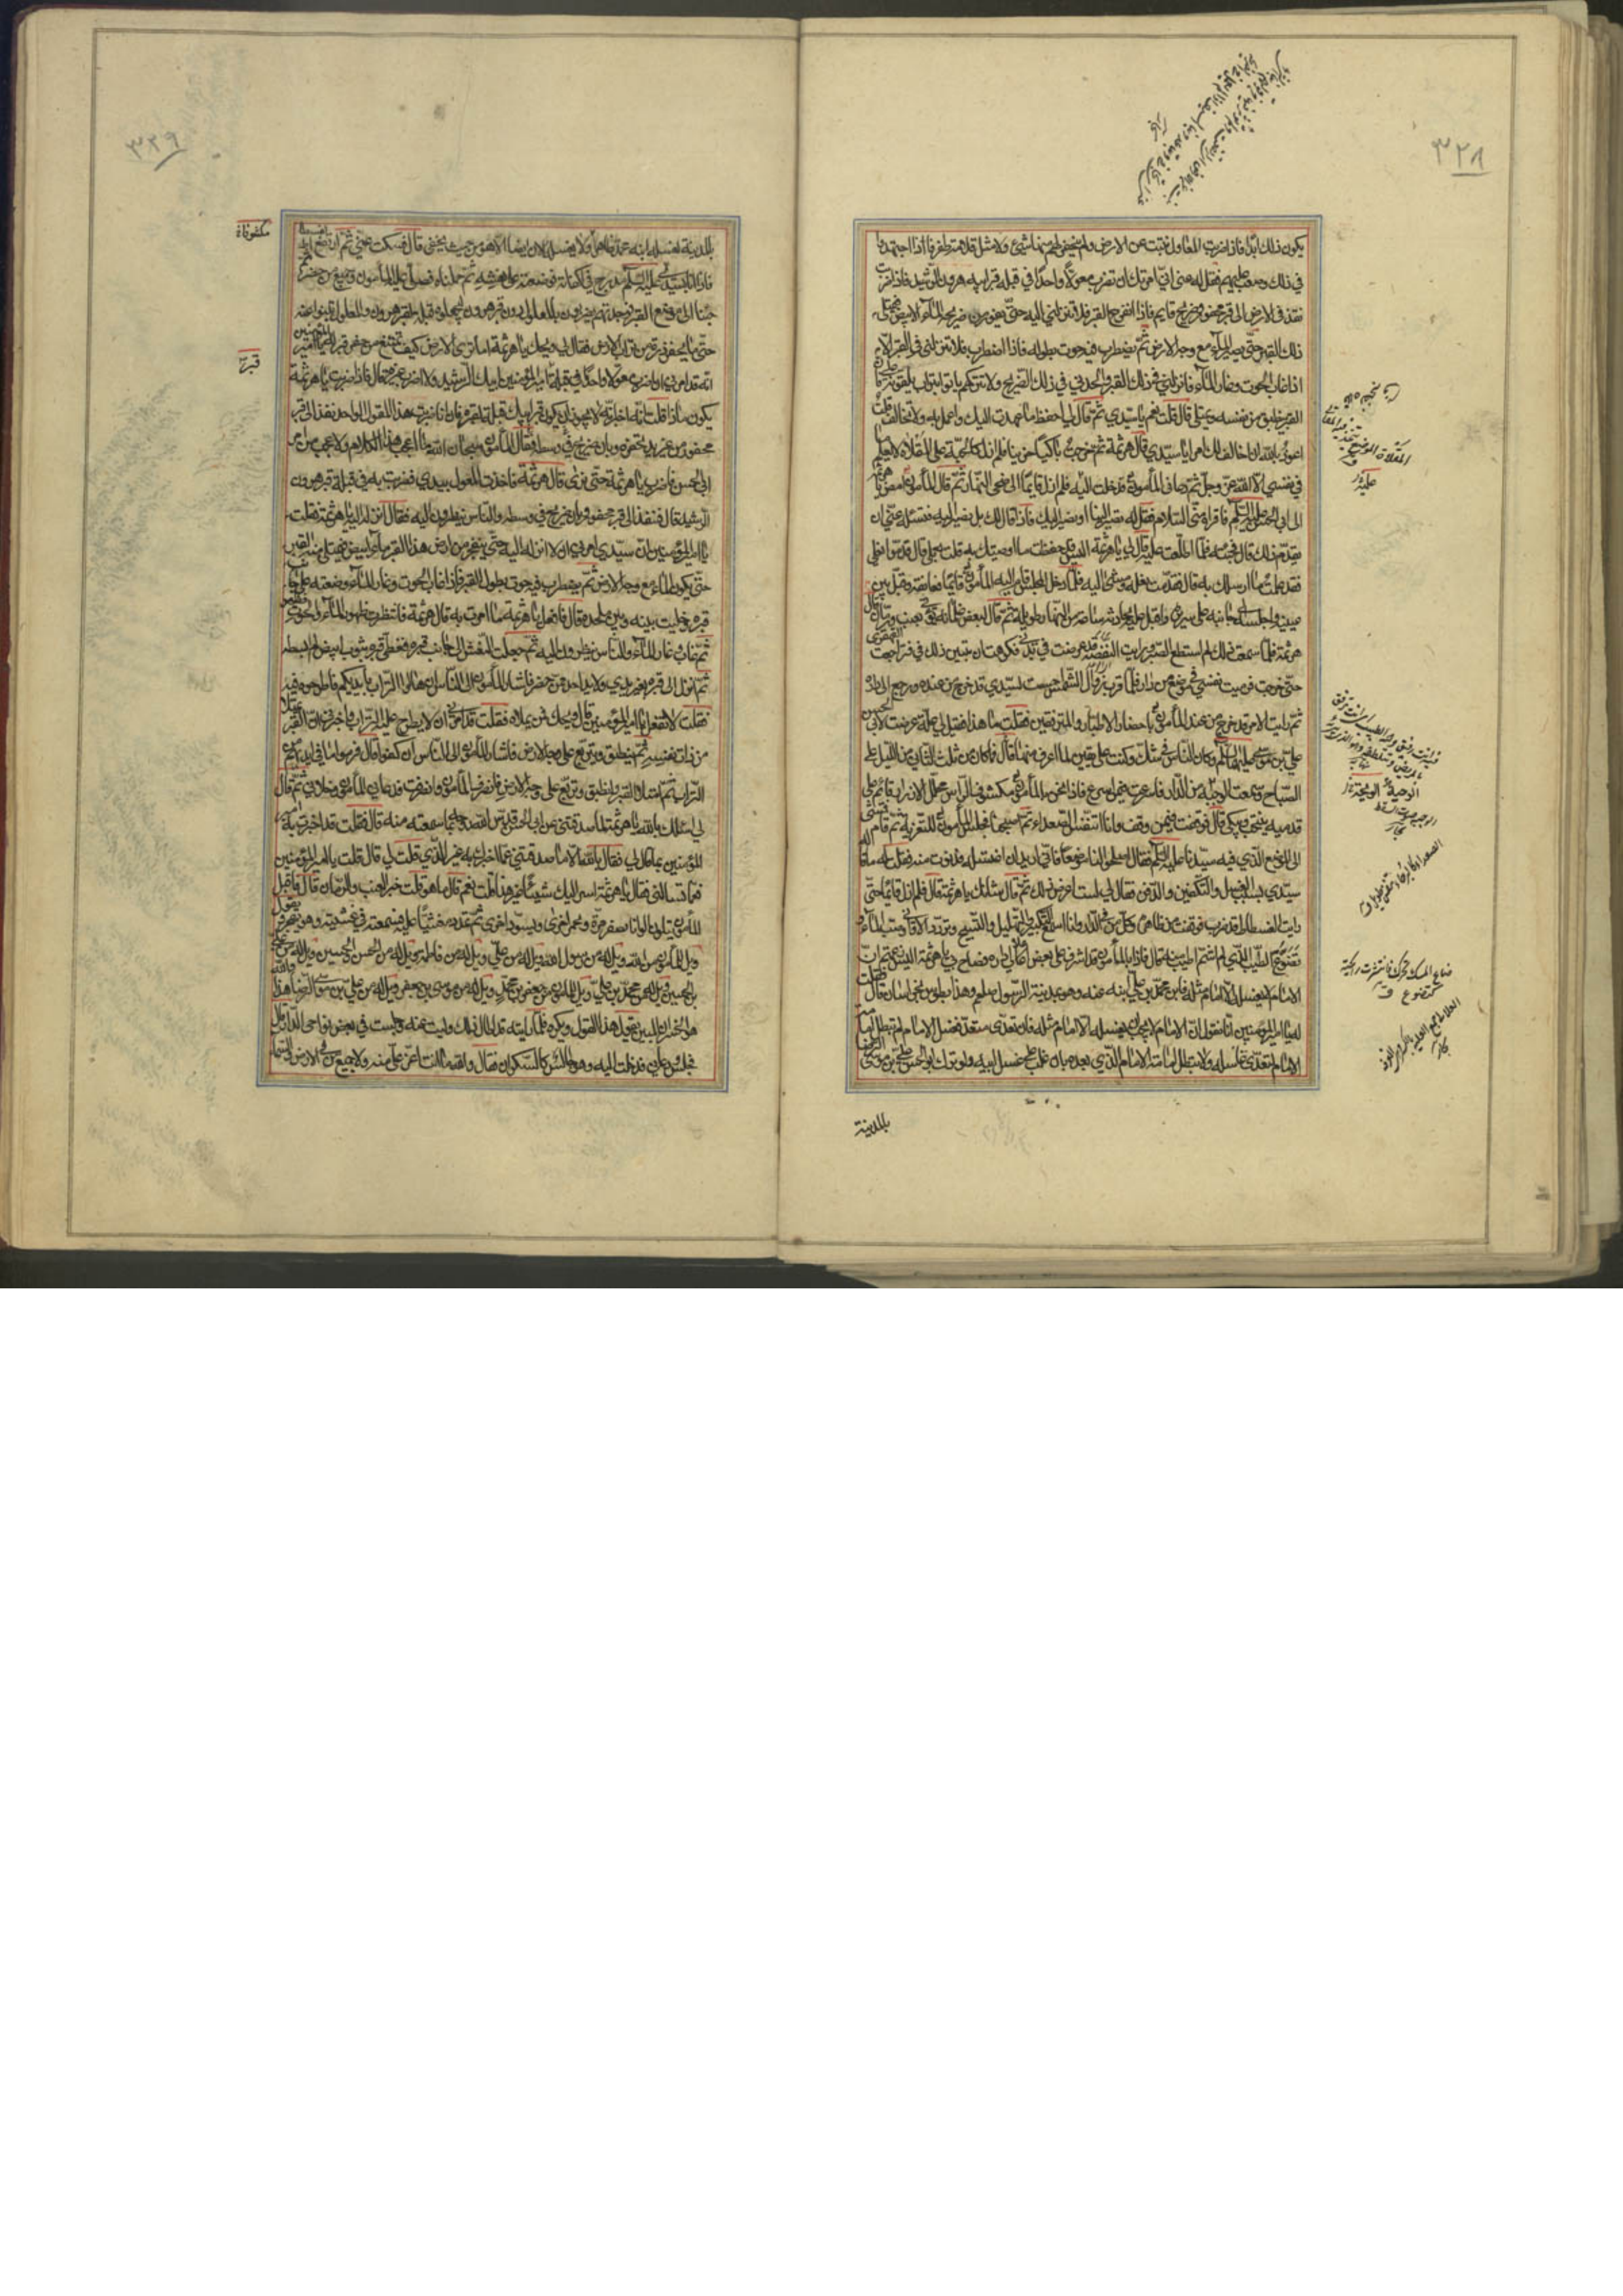 ٣٢٨
يكون ذلك ابدا فاذا ضربت المعاول نبت عن الارض ولم ينحفر لهم منها شيء ولا مثل قلامة ظفر فاذا اجتهدوا
في ذلك وصعب عليهم فقل له عني اني امرتك ان تضرب معولا واحدا في قبلة قبر ابيه هرون الرشيد فاذا ضربت
نفذ في الارض الى قبر محفور وضريح قايم فاذا انفرج القبر فلا تنزلني اليه حتى يفور من ضريحه الماء الابيض فيمتلى
ذلك القبر حتى يصير الماء مع وجه الارض ثم يضطرب فيه حوت بطوله فاذا اضطرب فلا تنزلني في القبر الا
اذا غاب الحوت وغار الماء فانزلني في ذلك القبر والحدني في ذلك الضريح ولا تتركهم ياتوا بتراب يلقونه علي فان
القبر ينطبق من نفسه ويمتلي قال قلت نعم يا سيدي ثم قال لي احفظ ما عهدت اليك واعمل به ولا تخالف قلت
اعوذ بالله ان اخالف لك امرا يا سيدي قال هرثمة ثم خرجت باكيا حزينا فلم ازل كالحبة على المقلاة لا يعلم ما
في نفسي الا الله عز وجل ثم دعاني المأمون فدخلت اليه فلم ازل قايما الى ضحى النهار ثم قال المأمون امض يا هرثمة
الى ابي الحسن عليه السلم فاقرأه مني السلام وقل له تصير الينا او نصير اليك فان قال لك بل نصير اليه فتسئله عني ان
يقدم ذلك قال فجئته فلما اطلعت عليه قال لي يا هرثمة اليس قد حفظت ما اوصيتك به قلت بلى قال قدموا نعلي
فقد علمت ما ارسلك به قال فقدمت نعله ومشى اليه فلما دخل المجلس قام اليه المأمون قايما فعانقه وقبل بين
عينيه واجلسه الى جانبه على سريره واقبل عليه يحادثه ساعة من النهار طويلة ثم قال لبعض غلمانه يؤتى بعنب ورمان قال
هرثمة فلما سمعت ذلك لم استطع الصبر ورايت النفضة قد عرضت في بدني فكرهت ان يتبين ذلك في فتراجعت القهقرى
حتى خرجت فرميت نفسي في موضع من الدار فلما قرب زوال الشمس احسست بسيدي قد خرج من عنده ورجع الى داره
ثم رايت الامر قد خرج من عند المأمون باحضار الاطباء والمترفقين فقلت ما هذا فقيل لي علة عرضت لابي الحسن
علي بن موسى عليهما السلم وكان الناس في شك وكنت على يقين لما اعرف منه قال فلما كان من ثلث الثاني من الليل علا
الصياح وسمعت الوجبة من الدار فاسرعت فيمن اسرع فاذا نحن بالمأمون مكشوف الراس محلل الازرار قائم على
قدميه ينتحب ويبكي قال فوقفت فيمن وقف وانا اتنفس الصعداء ثم اصبحنا فجلس المأمون للتعزية ثم قام فمشى
الى الموضع الذي فيه سيدنا عليه السلم فقال اصلحوا لنا موضعا فاني اريد ان اغسله فدنوت منه فقلت له ما قاله
سيدي بسبب الغسل والتكفين والدفن فقال لي لست اعرض لذلك ثم قال شانك يا هرثمة قال فلم ازل قايما حتى
رايت الفسطاط قد ضرب فوقفت من ظاهره وكل من في الدار دوني وانا اسمع التكبير والتهليل والتسبيح وتردد الاواني وصب الماء و
تضوع الطيب الذي لم اشم اطيب منه قال فاذا بالمأمون قد اشرف على بعض اعالي داره فصاح بي يا هرثمة اليس زعمتم ان
الامام لا يغسله الا امام مثله فاين محمد بن علي ابنه عنه وهو بمدينة الرسول صلعم وهذا بطوس بخراسان قال فقلت
له يا امير المؤمنين انا نقول ان الامام لا يجب ان يغسله الا امام مثله فان تعدى متعد فغسل الامام لم تبطل امامة
الامام لتعدي غاسله ولا بطلت امامة الامام الذي بعده بان غلب على غسل ابيه ولو ترك ابو الحسن علي بن موسى الرضا
بالمدينة
٣٢٩
بالمدينة لغسله ابنه محمد ظاهرا ولا يغسله الان ايضا الا هو من حيث يخفى قال فسكت عني ثم ارتفع الفسطاط
فاذا انا بسيدي عليه السلم مدرج في اكفانه فوضعته على نعشه ثم حملناه فصلى عليه المأمون وجميع من حضر ثم
جئنا الى موضع القبر فوجدتهم يضربون بالمعاول دون قبر هرون ليجعلوه قبلة لقبره والمعاول تنبو عنه
حتى ما يحفر ذرة من تراب الارض فقال لي ويحك يا هرثمة اما ترى الارض كيف تمتنع من حفر قبر له فقلت يا امير المؤمنين
انه قد امرني ان اضرب معولا واحدا في قبلة قبر امير المؤمنين ابيك الرشيد ولا اضرب غيره قال فاذا ضربت يا هرثمة
يكون ماذا قلت انه اخبر انه لا يجوز ان يكون قبر ابيك قبلة لقبره فان انا ضربت هذا المعول الواحد نفذ الى قبر
محفور من غير يد تحفره وبان ضريح في وسطه فقال المأمون سبحان الله ما اعجب هذا الكلام ولا عجب من امر
ابي الحسن فاضرب يا هرثمة حتى نرى قال هرثمة فاخذت المعول بيدي فضربت به في قبلة قبر هرون
الرشيد قال فنفذ الى قبر محفور وبان ضريح في وسطه والناس ينظرون اليه فقال انزله اليه يا هرثمة فقلت
يا امير المؤمنين ان سيدي امرني ان لا انزله اليه حتى ينفجر من ارض هذا القبر ماء ابيض فيمتلى منه القبر
حتى يكون الماء مع وجه الارض ثم يضطرب فيه حوت بطول القبر فاذا غاب الحوت وغار الماء وضعته على جانب
قبره وخليت بينه وبين ملحده قال فافعل يا هرثمة ما امرت به قال هرثمة فانتظرت ظهور الماء والحوت فظهر
ثم غاب وغار الماء والناس ينظرون اليه ثم جعلت النعش الى جانب قبره فغطى قبره بثوب ابيض لم ابسطه
ثم انزل الى قبره بغير يدي ولا يد احد ممن حضر فاشار المأمون الى الناس ان هالوا التراب بايديكم فاطرحوه فيه
فقلت لا تفعل يا امير المؤمنين قال ويحك فمن يملاه فقلت قد امرني ان لا يطرح عليه التراب واخبرني ان القبر يمتلى
من ذات نفسه ثم ينطبق ويتربع على وجه الارض فاشار المأمون الى الناس ان كفوا قال فرموا ما في ايديهم من
التراب ثم امتلا القبر وانطبق وتربع على وجه الارض فانصرف المأمون وانصرفت فدعاني المأمون وخلا بي ثم قال
لي اسئلك بالله يا هرثمة لما صدقتني عن ابي الحسن قدس الله روحه بما سمعته منه قال فقلت قد اخبرت يا امير
المؤمنين بما قال لي فقال بالله الا ما صدقتني عما اخبرك به غير الذي قلت لي قال قلت يا امير المؤمنين
فعما تسالني فقال يا هرثمة اسر اليك شيئا غير هذا قلت نعم قال ما هو قلت خبر العنب والرمان قال فاقبل
المأمون يتلون الوانا بصفرة وحمرة اخرى ويسود اخرى ثم تمدد مغشيا عليه فسمعته في غشيته وهو يجهر و يقول
ويل للمأمون من الله ويل له من رسول الله ويل له من علي ويل له من فاطمة ويل له من الحسن والحسين ويل له من علي
بن الحسين ويل له من محمد بن علي ويل للمأمون من جعفر بن محمد ويل له من موسى بن جعفر ويل له من علي بن موسى الرضا هذا والله
هو الخسران المبين يقول هذا القول ويكرره فلما رايته قد اطال ذلك وليت عنه وجلست في بعض نواحي الدار قال
فجلس ودعاني فدخلت اليه وهو جالس كالسكران فقال والله ما انت اعز علي منه ولا جميع من في الارض والسماء